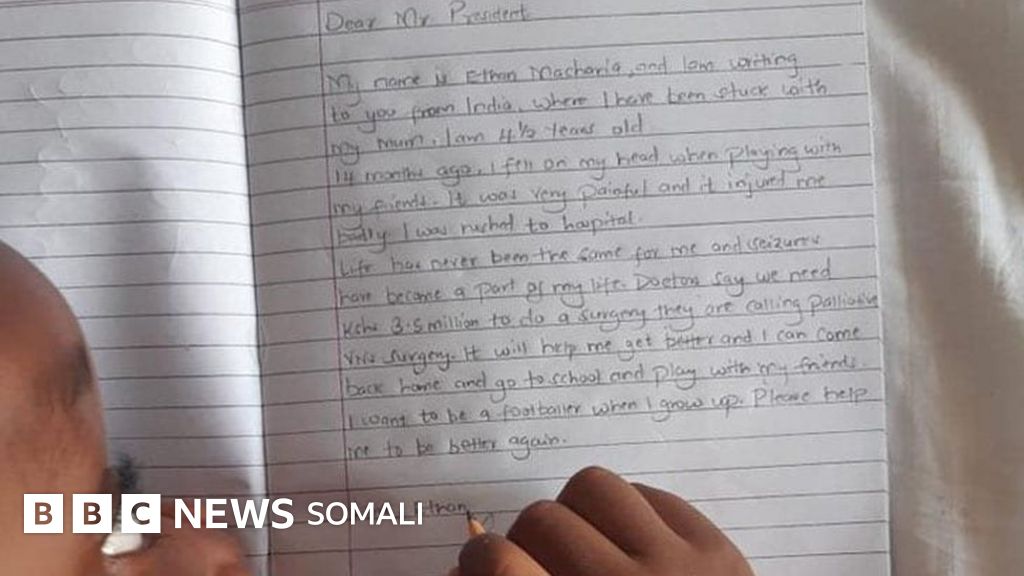 Dear Mr President
My name is Ethan Macharia, and I am writing
to you from India, where I have been stuck with
my mum. I am 4 1/2 years old
14 months ago, I fell on my head when playing with
my friends. It was very painful and it injured me
badly. I was rushed to hospital.
Life has never been the same for me and seizures
have become a part of my life. Doctors say we need
Kshs 3.5 million to do a surgery they are calling Palliative
VNS surgery. It will help me get better and I can come
back home and go to school and play with my friends.
I want to be a footballer when I grow up. Please help
me to be better again.
Ethan
BBC NEWS SOMALI